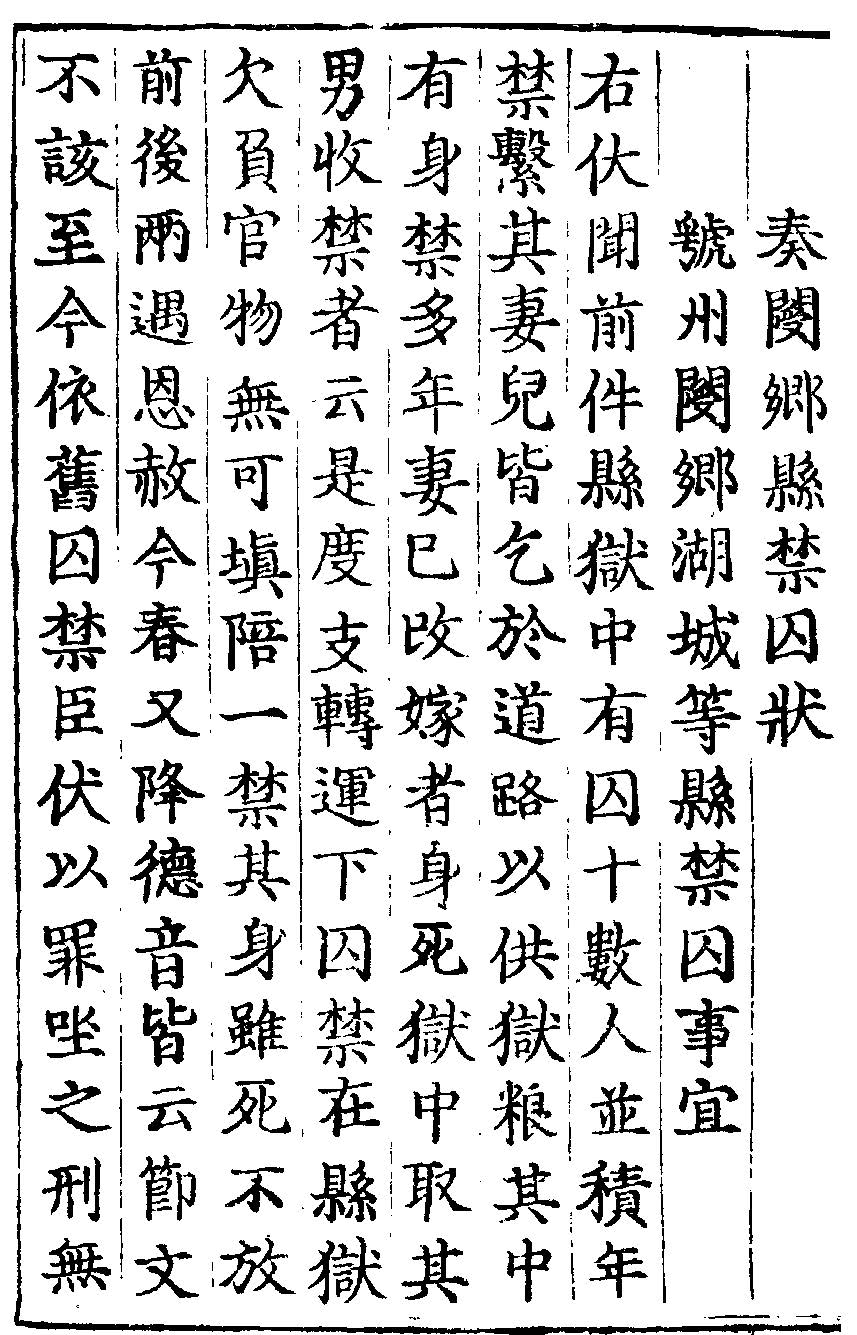 奏閿鄉縣禁囚狀
虢州閿鄉湖城等縣禁囚事宜
右伏聞前件縣獄中有囚十數人並積年
禁繫其妻兒皆乞於道路以供獄粮其中
有身禁多年妻已改嫁者身死獄中取其
男收禁者云是度支轉運下囚禁在縣獄
欠負官物無可塡陪一禁其身雖死不放
前後兩遇恩赦今春又降德音皆云節文
不該至今依舊囚禁臣伏以罪坐之刑無